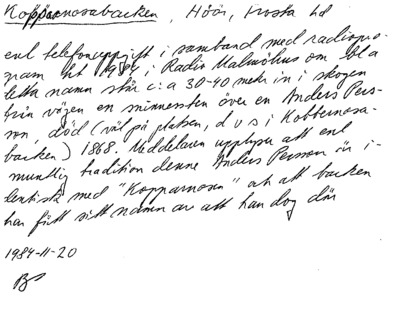 Kopparnosabacken, Höör, Frosta hd
enl telefonuppgift i samband med radiopro-
gram ht 1984 i Radio Malmöhus om bl a
detta namn står c:a 30-40 meter in i skogen
från vägen en minnessten över en Anders Pers-
son, död (väl på platsen, d v s i Kobbernosa-
backen) 1868. Meddelaren upplyser att enl
muntlig tradition denne Anders Persson är i-
dentisk med "Kopparnosen" o att backen
har fått sitt namn av att han dog där
1984-11-20